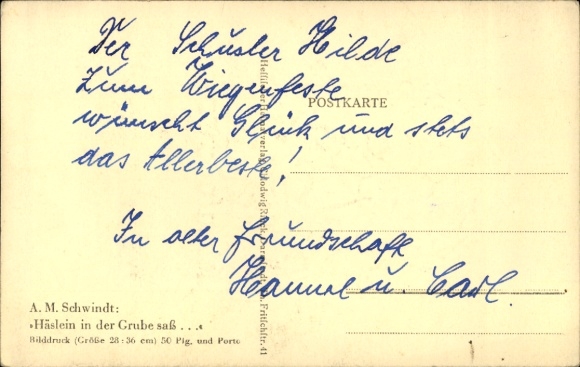 Der Schuster Hilde
zum Wiegenfeste
POSTKARTE
wünscht Glück und stets
das Allerbeste!
In alter Freundschaft
u. Carl.
A. M. Schwindt:
»Häslein in der Grube saß . . .«
Bilddruck (Größe 28 : 36 cm) 50 Pfg. und Porto